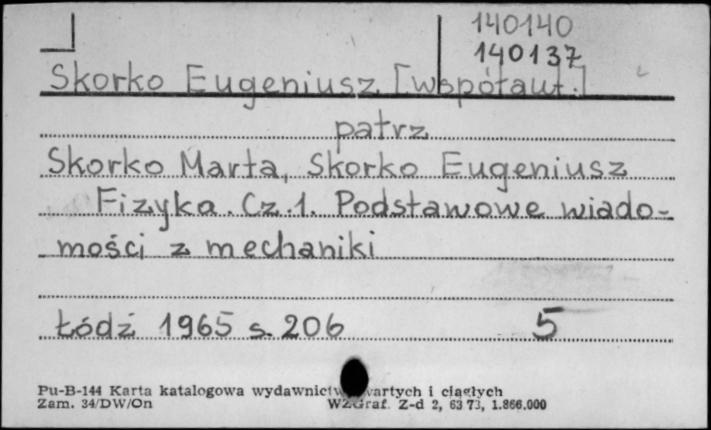 140140
140137
Skorko Eugeniusz [współaut.]
patrz
Skorko Marta, Skorko Eugeniusz
Fizyka. Cz.1. Podstawowe wiado-
mości z mechaniki
Łódź 1965 s. 206 5
Pu-B-144 Karta katalogowa i ciągłych
Zam. 34/DW/On WZGraf. Z-d 2, 63 73, 1.866.000